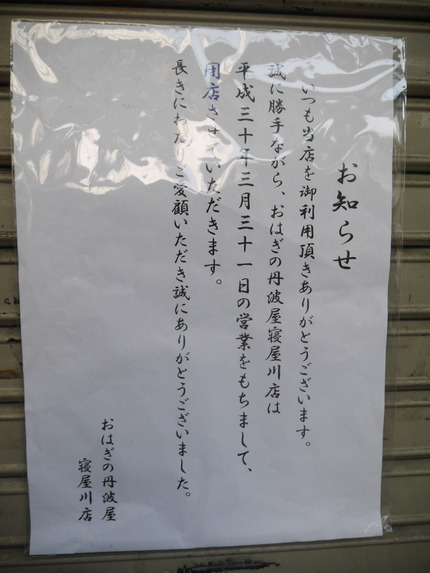 お知らせ
いつも当店を御利用頂きありがとうございます。
誠に勝手ながら、おはぎの丹波屋寝屋川店は
平成三十年三月三十一日の営業をもちまして、
閉店させていただきます。
長きにわたりご愛顧いただき誠にありがとうございました。
おはぎの丹波屋
寝屋川店